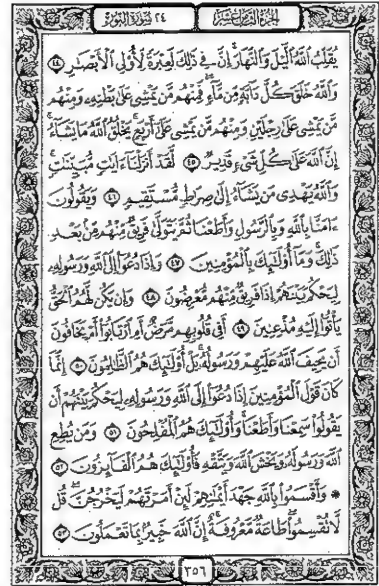 الجزء الثامن عشر ٢٤ سورة النور
يُقَلِّبُ اللَّهُ الَّيْلَ وَالنَّهَارَ إِنَّ فِي ذَٰلِكَ لَعِبْرَةً لِّأُولِي الْأَبْصَٰرِ ٤٤
وَاللَّهُ خَلَقَ كُلَّ دَآبَّةٍ مِّن مَّآءٍ فَمِنْهُم مَّن يَمْشِي عَلَىٰ بَطْنِهِۦ وَمِنْهُم
مَّن يَمْشِي عَلَىٰ رِجْلَيْنِ وَمِنْهُم مَّن يَمْشِي عَلَىٰٓ أَرْبَعٍ يَخْلُقُ اللَّهُ مَا يَشَآءُ
إِنَّ اللَّهَ عَلَىٰ كُلِّ شَيْءٍ قَدِيرٌ ٤٥ لَّقَدْ أَنزَلْنَآ ءَايَٰتٍ مُّبَيِّنَٰتٍ
وَاللَّهُ يَهْدِي مَن يَشَآءُ إِلَىٰ صِرَٰطٍ مُّسْتَقِيمٍ ٤٦ وَيَقُولُونَ
ءَامَنَّا بِاللَّهِ وَبِالرَّسُولِ وَأَطَعْنَا ثُمَّ يَتَوَلَّىٰ فَرِيقٌ مِّنْهُم مِّنۢ بَعْدِ
ذَٰلِكَ وَمَآ أُولَٰٓئِكَ بِالْمُؤْمِنِينَ ٤٧ وَإِذَا دُعُوٓا إِلَى اللَّهِ وَرَسُولِهِۦ
لِيَحْكُمَ بَيْنَهُمْ إِذَا فَرِيقٌ مِّنْهُم مُّعْرِضُونَ ٤٨ وَإِن يَكُن لَّهُمُ الْحَقُّ
يَأْتُوٓا إِلَيْهِ مُذْعِنِينَ ٤٩ أَفِي قُلُوبِهِم مَّرَضٌ أَمِ ارْتَابُوٓا أَمْ يَخَافُونَ
أَن يَحِيفَ اللَّهُ عَلَيْهِمْ وَرَسُولُهُۥ بَلْ أُولَٰٓئِكَ هُمُ الظَّٰلِمُونَ ٥٠ إِنَّمَا
كَانَ قَوْلَ الْمُؤْمِنِينَ إِذَا دُعُوٓا إِلَى اللَّهِ وَرَسُولِهِۦ لِيَحْكُمَ بَيْنَهُمْ أَن
يَقُولُوا سَمِعْنَا وَأَطَعْنَا وَأُولَٰٓئِكَ هُمُ الْمُفْلِحُونَ ٥١ وَمَن يُطِعِ
اللَّهَ وَرَسُولَهُۥ وَيَخْشَ اللَّهَ وَيَتَّقْهِ فَأُولَٰٓئِكَ هُمُ الْفَآئِزُونَ ٥٢
* وَأَقْسَمُوا بِاللَّهِ جَهْدَ أَيْمَٰنِهِمْ لَئِنْ أَمَرْتَهُمْ لَيَخْرُجُنَّ قُل
لَّا تُقْسِمُوا طَاعَةٌ مَّعْرُوفَةٌ إِنَّ اللَّهَ خَبِيرٌۢ بِمَا تَعْمَلُونَ ٥٣
٣٥٦